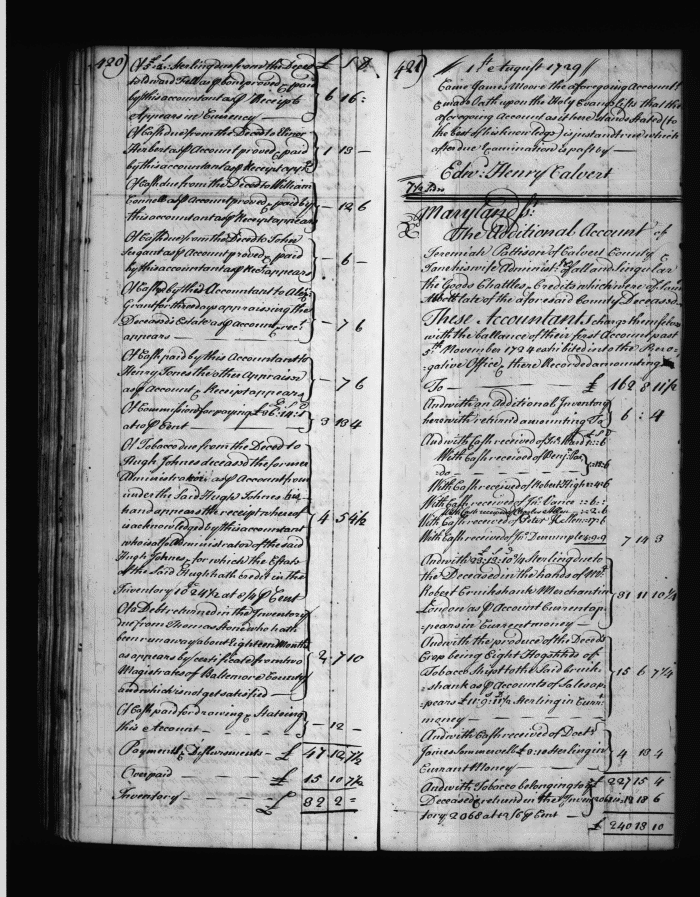 420)
Of £5:2: Sterling due from the Deced £ 1 8
to Edward Fell as p bond proved & paid
by this accountant as p Receipt 6 16:
Appears in Currency —
Of Cash due from the Deced to Elinor
Herbert as p Account proved & paid 1 13 —
by this accountant as p Receipt app.rs
Of Cash due from the Deced to William
Connell as p Account proved & paid by — 12 6
this accountant as p Receipt appears
Of Cash due from the Deced to John
as p Account proved & paid — 6 —
by this accountant as p Rec.t appears
Of Cash p.d by this Accountant to Alex.r
Grant for three days appraising the
Deceased's Estate as p account & rec.t — 7 6
appears —
Of Cash paid by this Accountant to
Henry Jones the other Appraiser — 7 6
as p Account & Receipt appears
Of Commission for paying £36:14:1 3 13 4
at 10 p Cent —
Of Tobacco due from the Deced to
Hugh Johnes deceased the former
Administrator as p Account from
under the Said Hugh Johnes his
hand appears the receipt whereof
is acknowledged by this accountant 4 5 4½
who is also Administrator of the said
Hugh Johnes, for which the Estate
of the Said Hugh hath credit in the
Inventory 1024½ at 8/4 p Cent
Of a Debt returned in the Inventory
due from Thomas Stone who hath
been runaway about Eighteen Months
as appears by certificate from two 2 7 10
Magistrates of Baltemore County
and which is not yet satisfied —
Of Cash paid for drawing & Stateing
this Account — — 12 —
Payments & Disbursments — £ 47 12 7½
Overpaid — £ 15 10 7½
Inventory — £ 32 2 =
421)
// 1st August 1729 //
Came James Moore the aforegoing Accountt
& made Oath upon the Holy Evangelists that the
aforegoing Account as it here stands Stated (to
the best of his knowledge) is just and true which
after due Examination is past by —
Edw.d Henry Calvert
7½ Sides
Maryland ss:
The Additional Account of
Jeremiah Pattison of Calvert County &
Jane his wife Administ.rs of all and Singular
the Goods Chattles & Credits which were of
late of the aforesaid County Deceased
These Accountants charge themselves
with the ballance of their first Account past
5th November 1724 exhibited into the Prero
gative Office & there Recorded amounting
To — £ 162 8 11½
And with an Additional Inventory
herewith returnd amounting To 6 : 4
And with Cash received of
With Cash received of Benj.a
do —
With Cash received of Robert High
With Cash received of Jn.o Vance
With Cash received of Peter Hellen
With Cash received of Jn.o 7 14 3
And with £23:13:10¾ Sterling due to
the Deceased in the hands of Mr
Robert Cruikshank Merchant in
London as p Account Current ap 31 11 10¼
=pears in Currect money —
And with the produce of the Deceds
Crop being Eight Hogsheads of
Tobacco Shipt to the Said Cruik
=shank as p Accounts of Sales ap 15 6 7¼
pears £11:9:11½ Sterling in Curr.t
money —
And with Cash received of Doct.r
James Sommervell Sterling in 4 13 4
Currant Money —
£ 227 15 4
And with Tobacco belonging to y.e
Deceased & returnd in the Inven 13 18 6
tory 2068 at p Cent —
£ 240 13 10